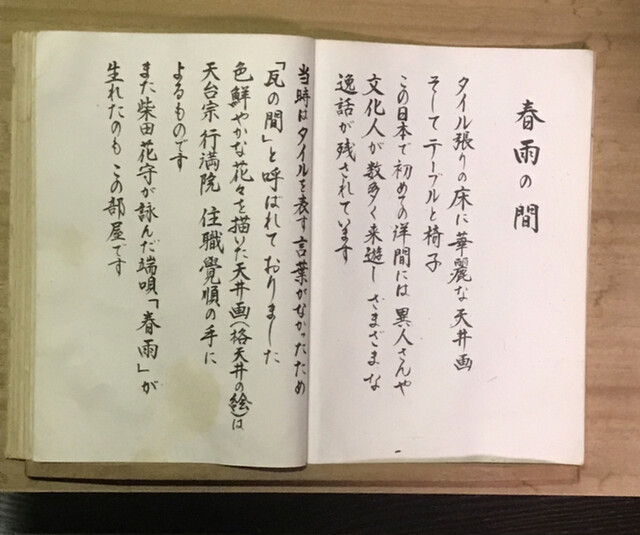 春雨の間
タイル張りの床に華麗な天井画
そしてテーブルと椅子
この日本で初めての洋間には異人さんや
文化人が数多く来遊しさまざまな
逸話が残されています
当時はタイルを表す言葉がなかったため
「瓦の間」と呼ばれておりました
色鮮やかな花々を描いた天井画(格天井の絵)は
天台宗行満院 住職覺順の手に
よるものです
また柴田花守が詠んだ端唄、「春雨」が
生れたのもこの部屋です